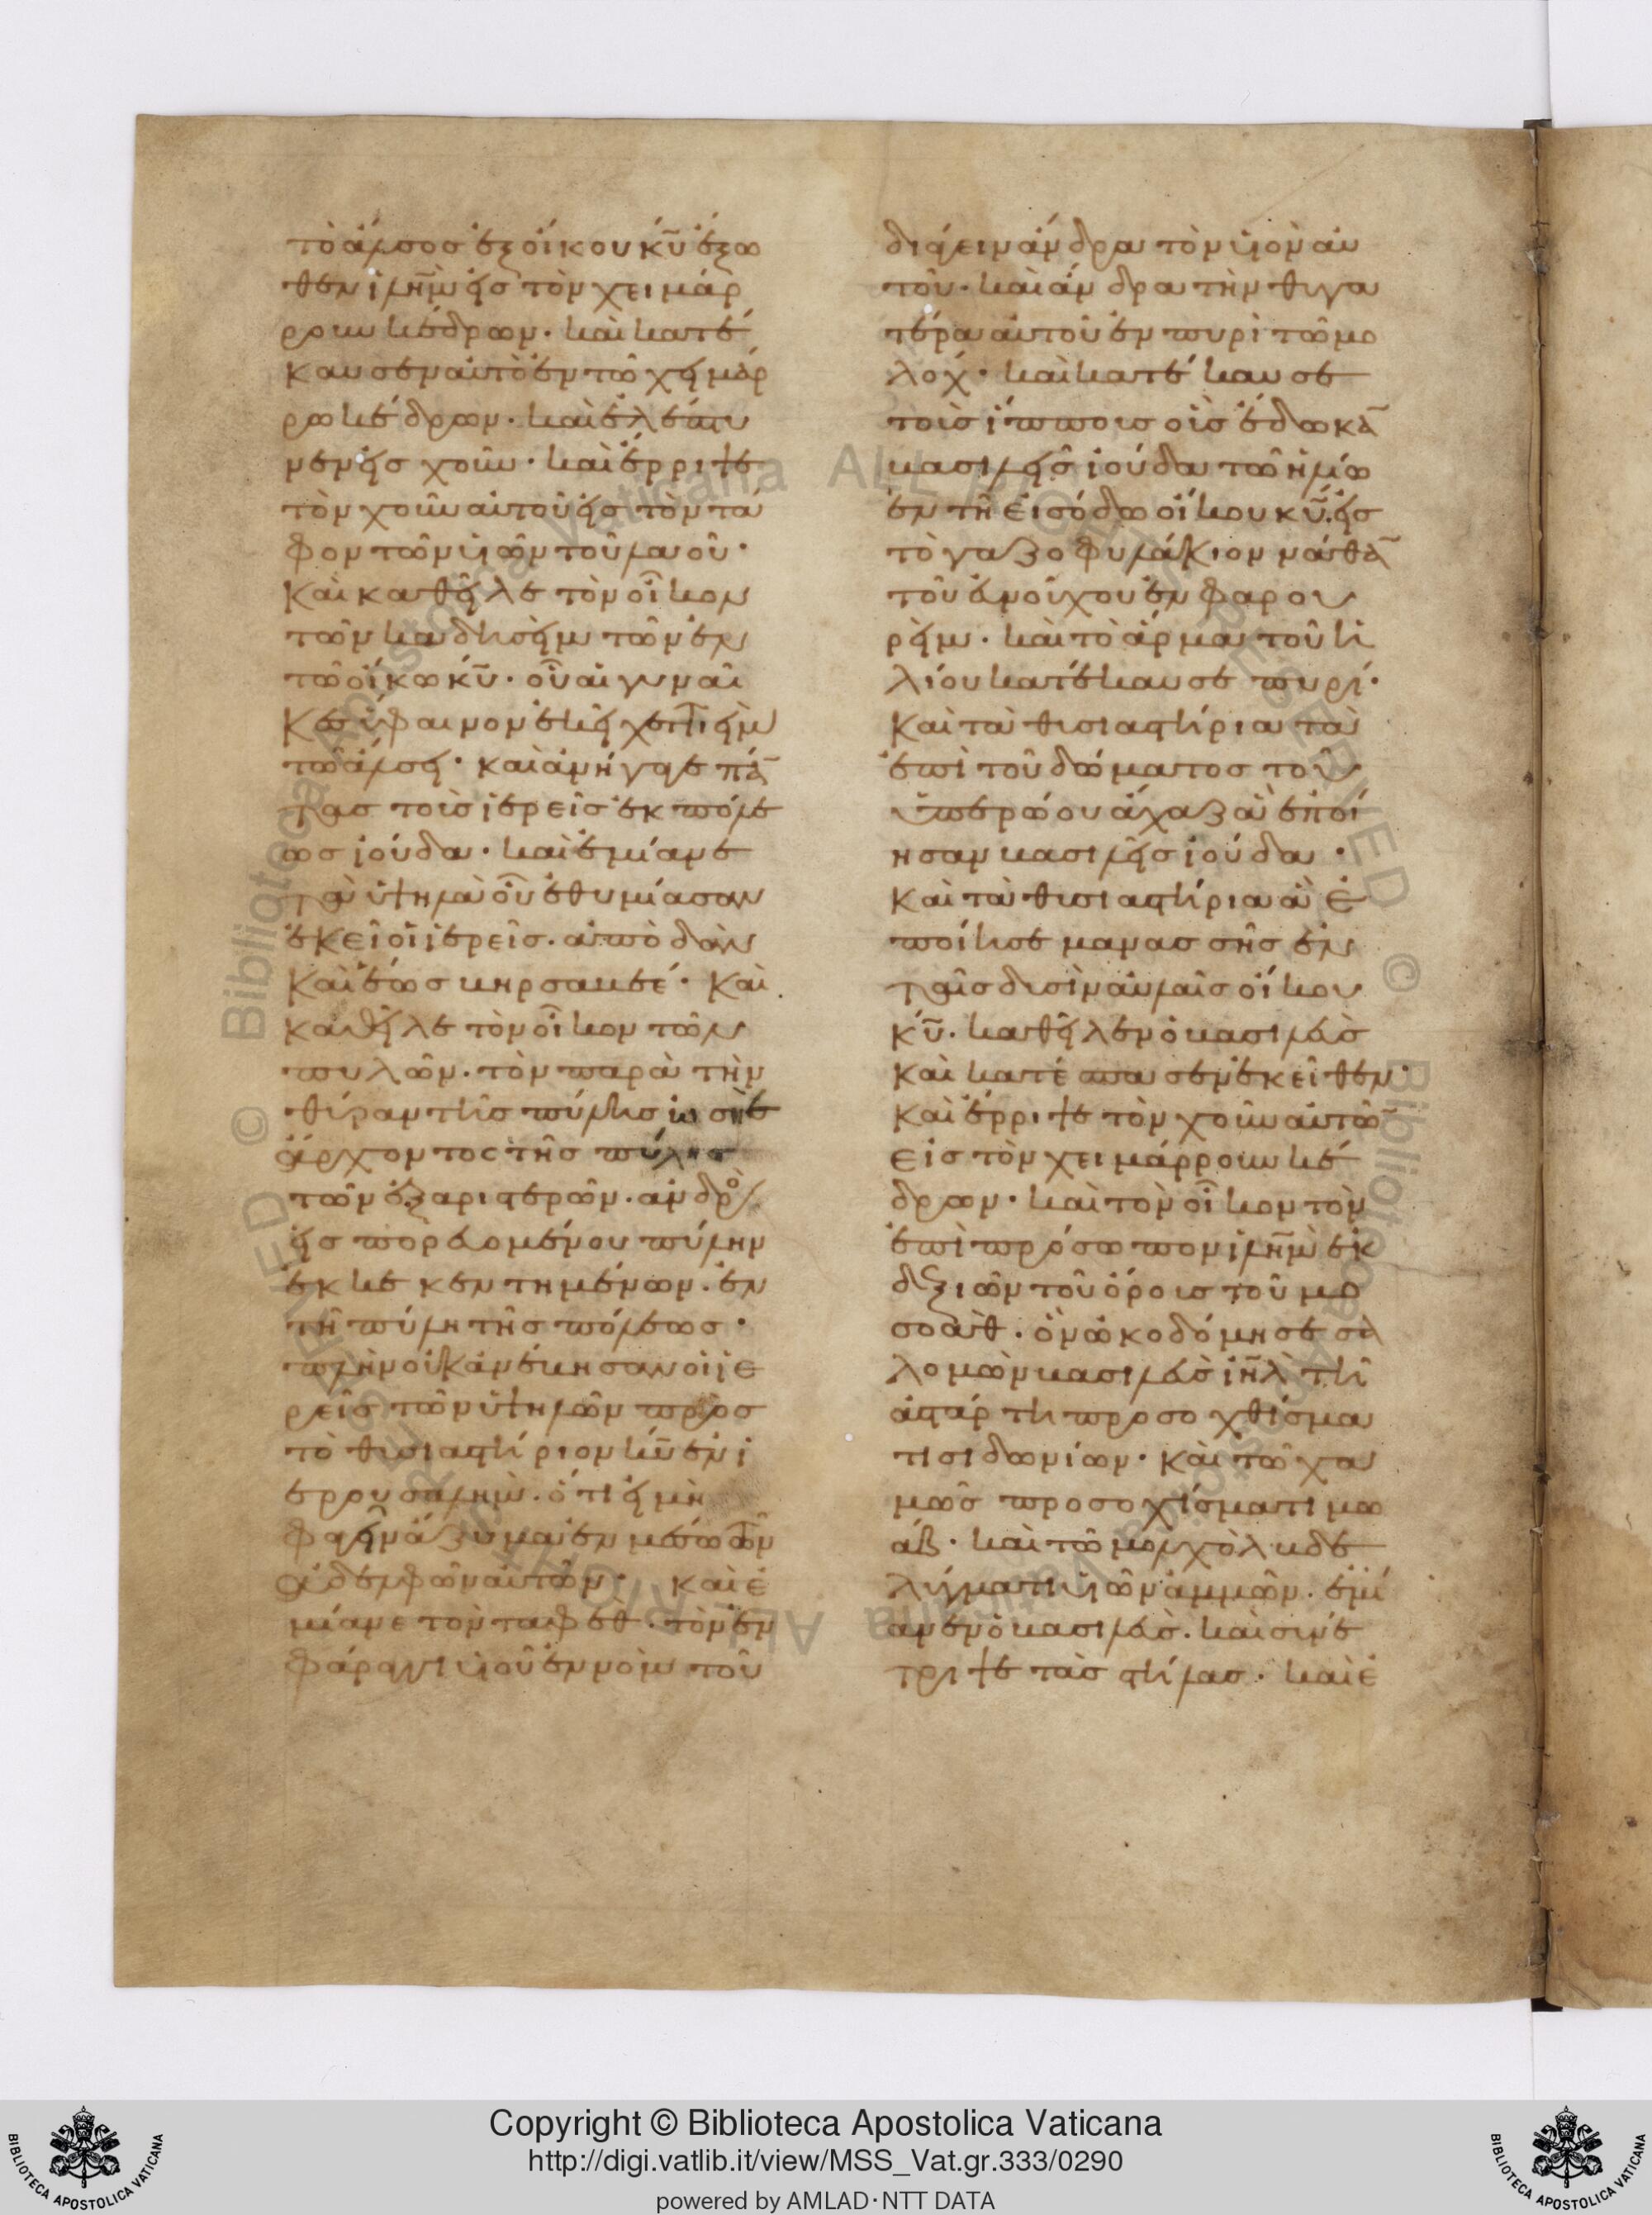 τὸ ἄλσος ἐξ οἴκου κ̅υ̅ ἔξω
θεν ἰλη̅μ̅ εἰς τὸν χειμάρ
ρουν κέδρων· καὶ κατέ
καυσεν αὐτὸ ἐν τῶ χειμάρ
ρω κέδρων· καὶ ἐλέπτυ
νεν εἰς χοῦν· καὶ ἔρριψε
τὸν χοῦν αὐτοῦ εἰς τὸν τά
φον τῶν υἱῶν τοῦ λαοῦ·
Καὶ καθεῖλε τὸν οἶκον
τῶν καδησεὶμ τῶν ἐν
τῶ οἴκω κ̅υ̅· οὗ αἱ γυναῖ
κες ὕφαινον ἐκεῖ χεττιεὶμ
τῶ ἄλσει· καὶ ἀνήγαγε πά̅
τας τοὺς ἱερεῖς ἐκ πόλε
ως ἰούδα· καὶ ἐμίανε
τὰ ὑψηλὰ οὗ ἐθυμίασαν
ἐκεῖ οἱ ἱερεῖς. ἀπὸ δὰν
καὶ ἕως βηρσαβεέ· Καὶ
καθεῖλε τὸν οἶκον τῶν
πυλῶν. τὸν παρὰ τὴν
θύραν τῆς πύλης ἰωσηὲ
ἄρχοντος τῆς πύλης
τῶν ἐξ ἀριστερῶν. ἀνδρὸς
εἰσπορευομένου πύλην
ἐκκεκεντημένων. ἐν
τῆ πύλη τῆς πόλεως·
πλὴν οὐκ ἀνέβησαν οἱ ἱε
ρεῖς τῶν ὑψηλῶν πρὸς
τὸ θυσιαστήριον κ̅υ̅ ἐν ἱ
ερουσαλήμ. ὅτι εἰ μὴ
φαγεῖν ἄζυμα ἐν μέσω τῶν
ἀδελφῶν αὐτῶν· καὶ ἐ
μίανε τὸν ταφὲθ. τὸν ἐν
φάραγγι υἱοῦ ἐννὸμ τοῦ
διάγειν ἄνδρα τὸν υἱὸν αὐ
τοῦ· καὶ ἄνδρα τὴν θυγα
τέρα αὐτοῦ ἐν πυρὶ τῶ μο
λόχ· καὶ κατέκαυσε
τοὺς ἵππους οὓς ἔδωκα̅
βασιλεῖς ἰούδα τῶ ἡλίω
ἐν τῆ εἰσόδω οἴκου κ̅υ̅. εἰς
τὸ γαζοφυλάκιον νάθα̅
τοῦ εὐνούχου ἐν φαρου
ρεὶμ· καὶ τὸ ἅρμα τοῦ ἡ
λίου κατέκαυσε πυρί·
Καὶ τὰ θυσιαστήρια τὰ
ἐπὶ τοῦ δώματος τοῦ
ὑπερώου ἄχαζ ἃ ἐποί
ησαν βασιλεῖς ἰούδα·
Καὶ τὰ θυσιαστήρια ἃ ἐ
ποίησε μανασσῆς ἐν
ταῖς δυσὶν αὐλαῖς οἴκου
κ̅υ̅. καθεῖλεν ὁ βασιλεὺς
καὶ κατέσπασεν ἐκεῖθεν·
Καὶ ἔρριψε τὸν χοῦν αὐτῶ̅
εἰς τὸν χειμάρρουν κέ
δρων· καὶ τὸν οἶκον τὸν
ἐπὶ πρόσωπον ἰλη̅μ̅ ἐκ
δεξιῶν τοῦ ὄρους τοῦ μο
σοὰθ. ὃν ὠκοδόμησε σα
λομὼν βασιλεὺς ἰη̅λ̅ τῆ
ἀστάρτη προσοχθίσμα
τι σιδωνίων· καὶ τῶ χα
μὼς προσοχθίσματι μω
άβ· καὶ τῶ μολχὸλ βδε
λύγματι υἱῶν ἀμμῶν. ἐμί
ανεν ὁ βασιλεύς. καὶ συνέ
τριψε τὰς στήλας· καὶ ἐ
Copyright © Biblioteca Apostolica Vaticana
http://digi.vatlib.it/view/MSS_Vat.gr.333/0290
powered by AMLAD·NTT DATA